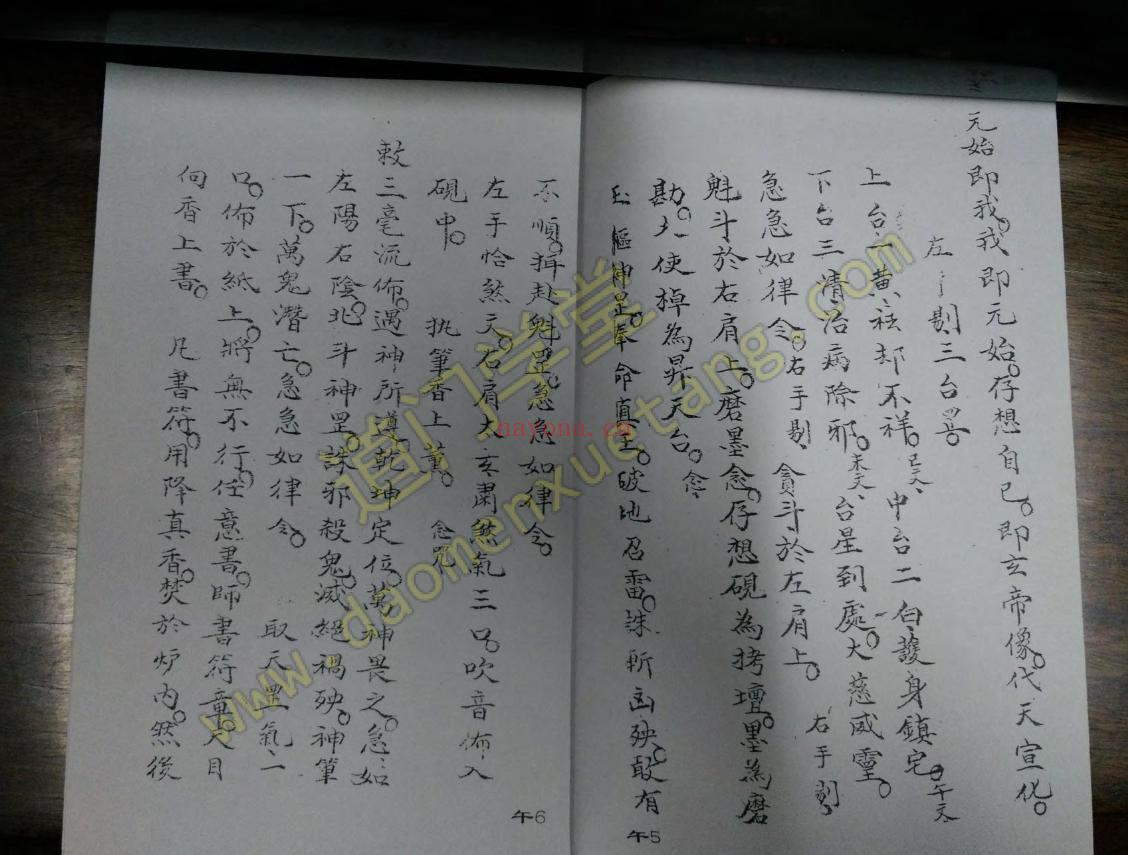 元始即我。我即元始。存想自己。即玄帝像。代天宣化。
左手剔三台罡。
上台一黃祛却不祥。巳文、中台二白護身鎮宅。午文
下台三清治病除邪。未文、台星到處。大慈威靈。
急急如律令。右手剔貪斗於左肩上。右手剔
魁斗於右肩上。磨墨念。存想硯為拷壇。墨為磨
勘。使掉為昇天台。念
玉樞神罡。奉命真王。破地召雷。誅斬凶殃。敢有
不順。押赴魁罡。急急如律令。
左手恰煞文。右肩大玄肅煞氣三口。吹音佈入
硯中。 执筆香上薰。念咒
敕三毫流佈。遇神所尊。乾坤定位。萬神畏之。急如
左陽右陰。北斗神罡。誅邪殺鬼。滅絕禍殃。神筆
一下。萬鬼潛亡。急急如律令。 取天罡氣二
口。佈於紙上。將無不行。任意書。師書符章。尺目
向香上書。 凡書符。用降真香。焚於炉內。然後
午5
午6
道门学堂
www.daomenxuetang.com
nayona.cn